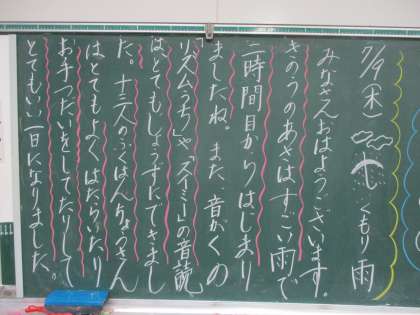 7/9(木) くもり 雨
みなさんおはようございます。
きのうのあさはすごい雨で
二時間目からはじまり
ましたね。また、音がくの
「リズムうち」や「スイミー」の音読
はとてもじょうずにできまし
た。十二人のふくはんちょうさん
はとてもよくはたらいたり
お手つだいをしてたりして
とてもいい一日になりました。